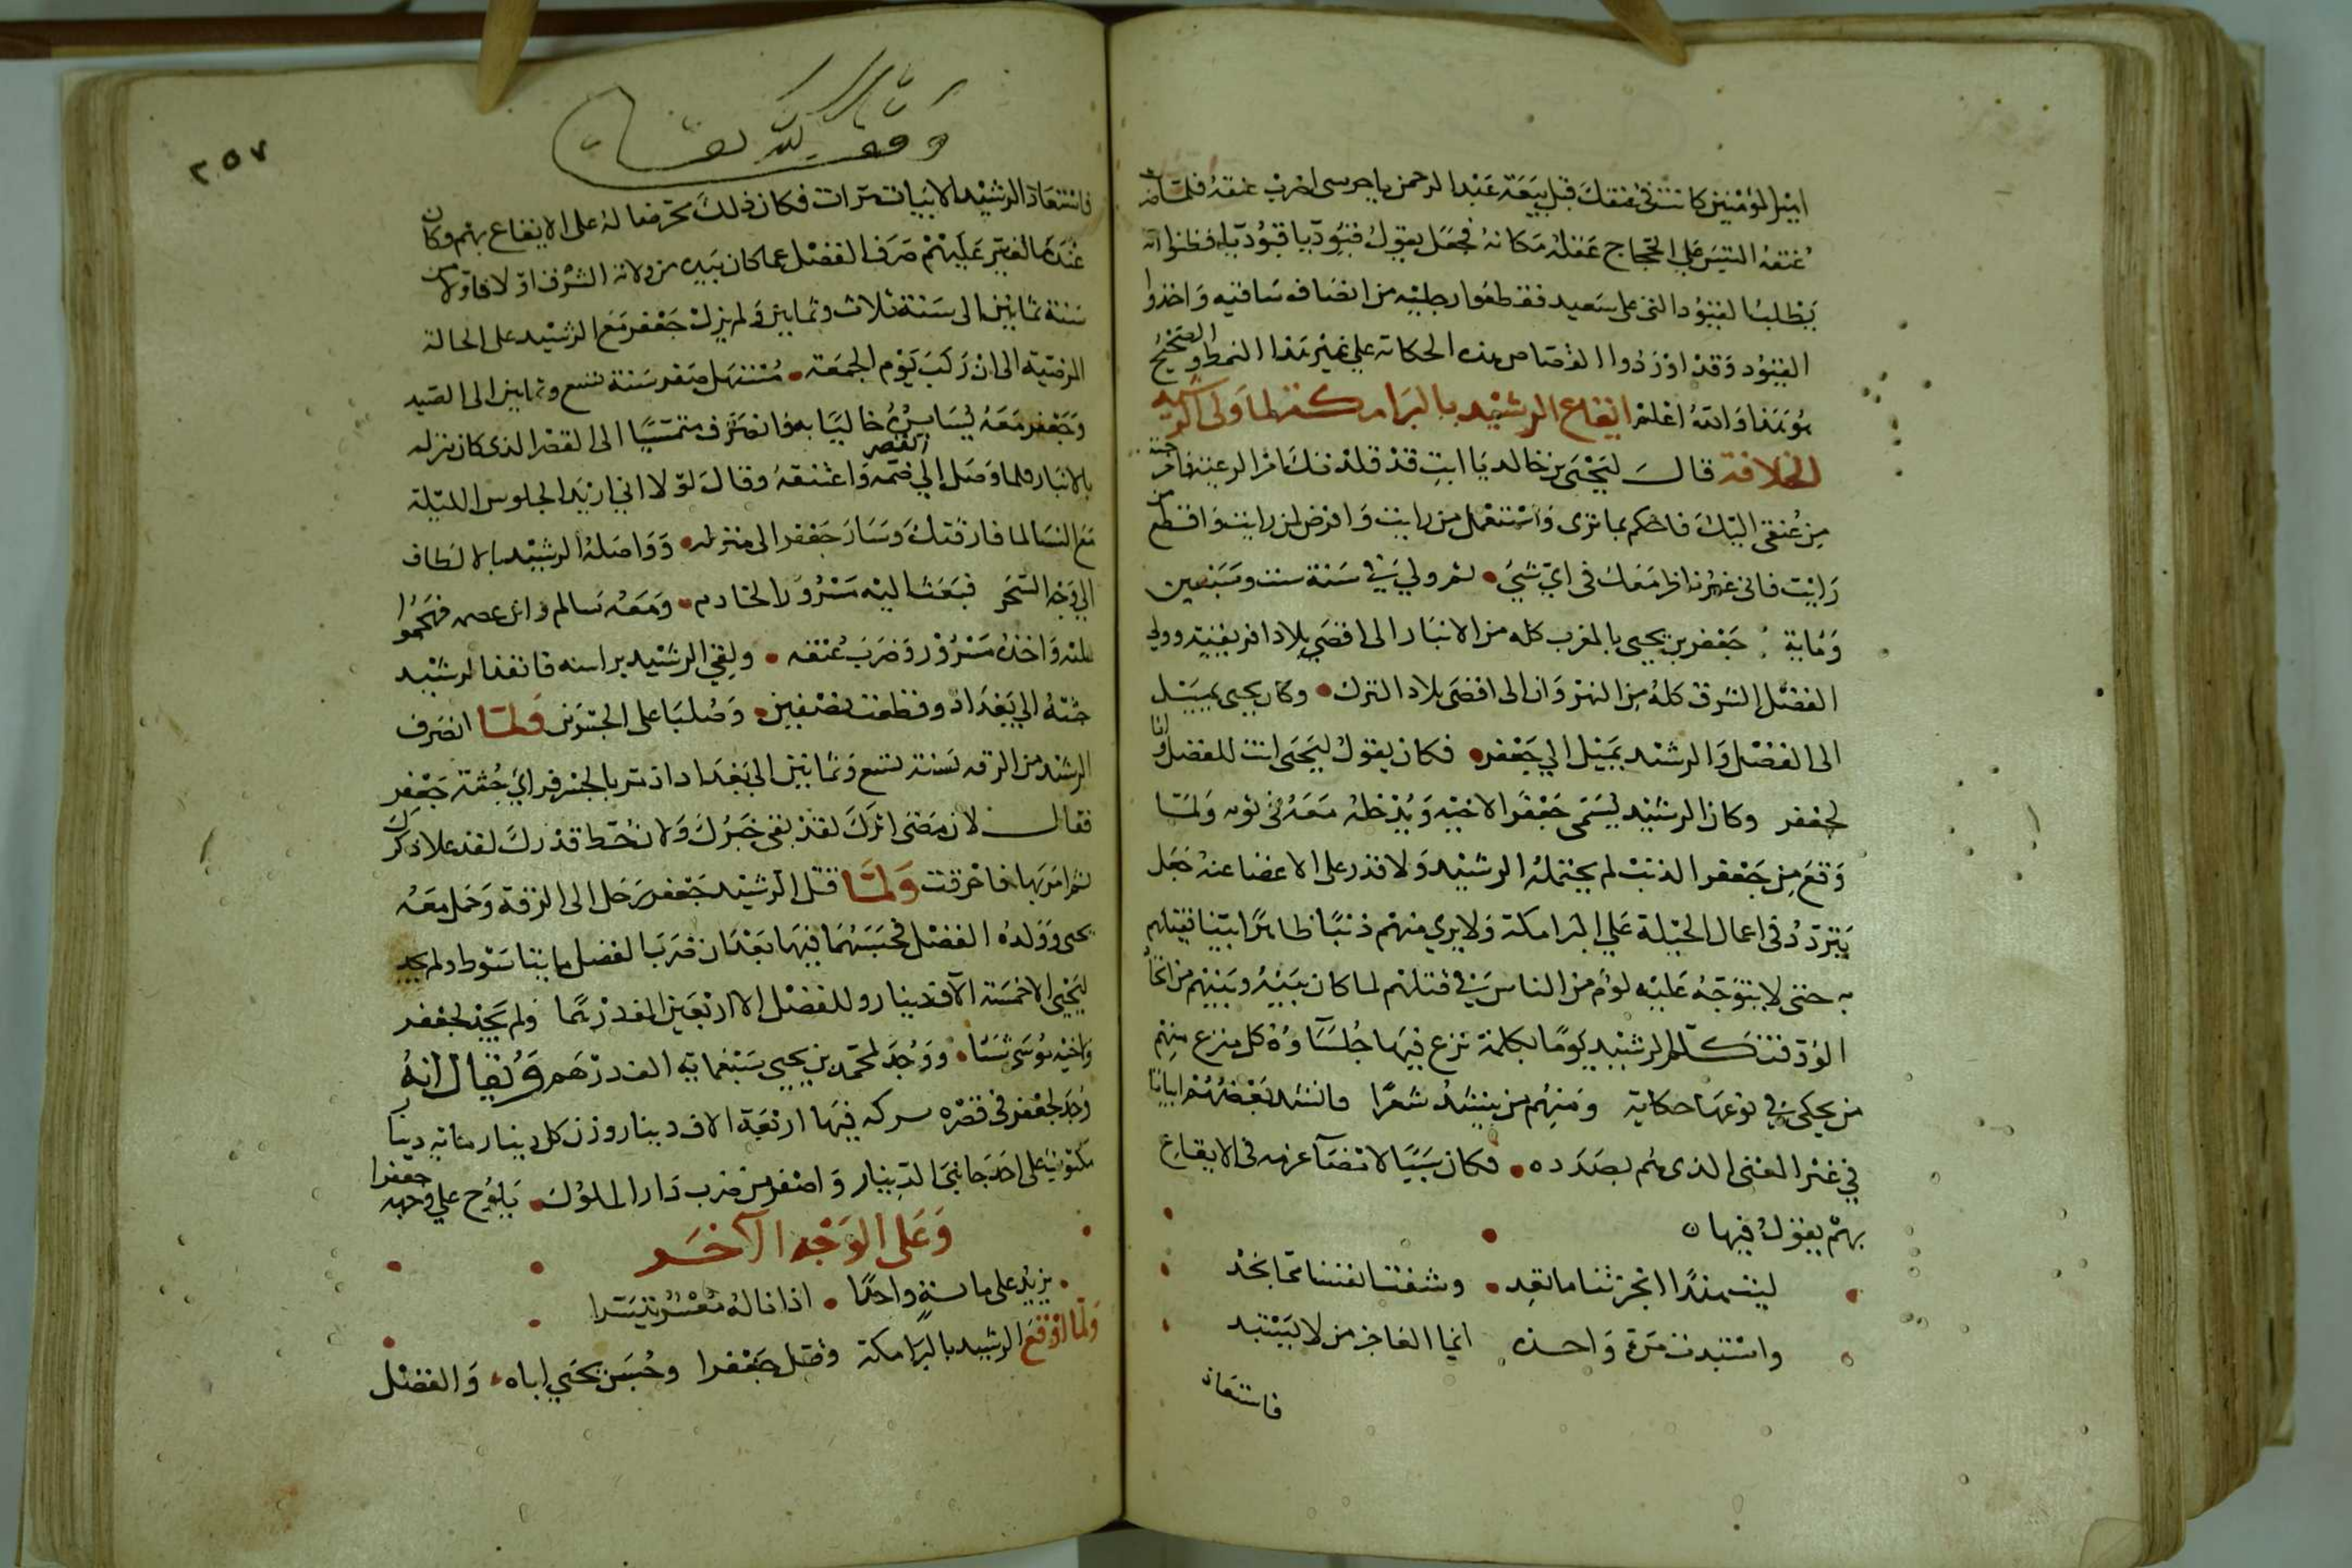 امير المؤمنين كانت في عنقك قبل بيعة عبد الرحمن يا حرسي اضرب عنقه فلما
عنقه التبس على الحجاج عقله مكانه فجعل يقول قيودنا قيودنا فظنوا انه
يطلب القيود التي على سعيد فقطعوا رجليه من انصاف ساقيه واخذوا
القيود وقد اوردوا القصاص هذه الحكاية على غير هذا النمط والصحيح
هو هذا والله اعلم ايقاع الرشيد بالبرامكة لما ولى الرشيد
الخلافة قال ليحيى بن خالد يا ابت قد قلدتك امر الرعية
من عنقي اليك فاحكم بما ترى واستعمل من رايت وافرض لمن رايت واقطع من
رايت فاني غير ناظر معك في اي شيء ثم ولي في سنة ست وسبعين
ومائة جعفر بن يحيى بالمغرب كله من الانبار الى اقصى بلاد افريقية وولي
الفضل الشرق كله من النهروان الى اقصى بلاد الترك وكان يحيى يميل
الى الفضل والرشيد يميل الى جعفر فكان يقول ليحيى انت للفضل وانا
لجعفر وكان الرشيد يسمى جعفرا لاخيه ويدخله معه في ثوبه ولما
وقع من جعفر الذنب لم يحتمله الرشيد ولا قدر على الاغضا عنه جعل
يتردد في اعمال الحيلة على البرامكة ولا يري منهم ذنبا ظاهرا بينا فيقتلهم
به حتى لا يتوجه عليه لوم من الناس في قتلهم لما كان بينه وبينهم من
الود فتكلم الرشيد يوما بكلمة نزع فيها جلساوه كل منزع منهم
من يحكي في نوعها حكاية ومنهم من ينشد شعرا فانشد بعضهم ابياتا
في غير المعنى الذي هم بصدده فكان سببا لامضا عزمه في الايقاع
بهم يقول فيها
ليت هندا انجزتنا ما تعد وشفت انفسنا مما تجد
واستبدت مرة واحدة انما العاجز من لا يستبد
فاستعاد
وقف لله تعالى
٢٥٧
فاستعاد الرشيد الابيات مرات فكان ذلك تحريضا له على الايقاع بهم وكان
عندما تغير عليهم صرف الفضل عما كان بيده من ولاية الشرق اولا فاولا من
سنة ثمانين الى سنة ثلاث وثمانين ولم يزل جعفر مع الرشيد على الحالة
المرضية الى ان ركب يوم الجمعة مستهل صفر سنة تسع وثمانين الى الصيد
وجعفر معه يسايره خاليا به وانصرف متمشيا الى القصر الذي كان نزله
بالانبار فلما وصل الي القصر ضمه واعتنقه وقال لولا اني اريد الجلوس الليلة
مع النسا لما فارقتك وسار جعفر الى منزله وواصله الرشيد بالالطاف
الى وجه السحر فبعث اليه مسرور الخادم ومعه سالم فهجموا
عليه واخذه مسرور وضرب عنقه ولقي الرشيد براسه فانفذ الرشيد
جثته الي بغداد وقطعت نصفين وصلبا على الجسرين ولما انصرف
الرشيد من الرقة سنة تسع وثمانين الى بغداد اذ مر بالجسر فراي جثة جعفر
فقال لان مضى اثرك لقد بقى خبرك ولان حط قدرك لقد علا ذكرك
ثم امر بها فاحرقت ولما قتل الرشيد جعفر رحل الى الرقة وحمل معه
يحيى وولده الفضل فحبسهما فيها بعد ان ضرب الفضل مايتا سوط ولم يجد
ليحيى الا خمسة الاف دينار وللفضل الا اربعين الف درهما ولم يجد لجعفر
واخيه موسى شيئا ووجد لمحمد بن يحيى سبعماية الف درهم ويقال انه
وجد لجعفر في قصره بركة فيها اربعة الاف دينار وزن كل دينار مائة دينار
مكتوب على احد جانبي الدينار واصفر من ضرب دار الملوك يلوح علي وجهه جعفرا
وعلى الوجه الآخر
يزيد على مائة واحدا اذا ناله معسر تيسرا
ولما اوقع الرشيد بالبرامكة وقتل جعفرا وحبس يحيى اباه والفضل